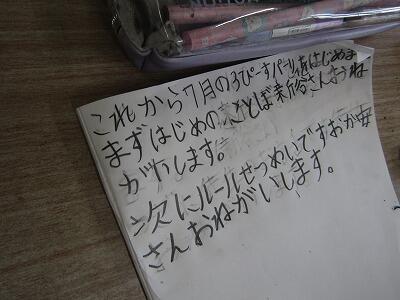 これから7月の3ぴーすパーティをはじめま
まずはじめのことば新谷さんおね
がいします。
次にルールせつめいですおか
さんおねがいします。